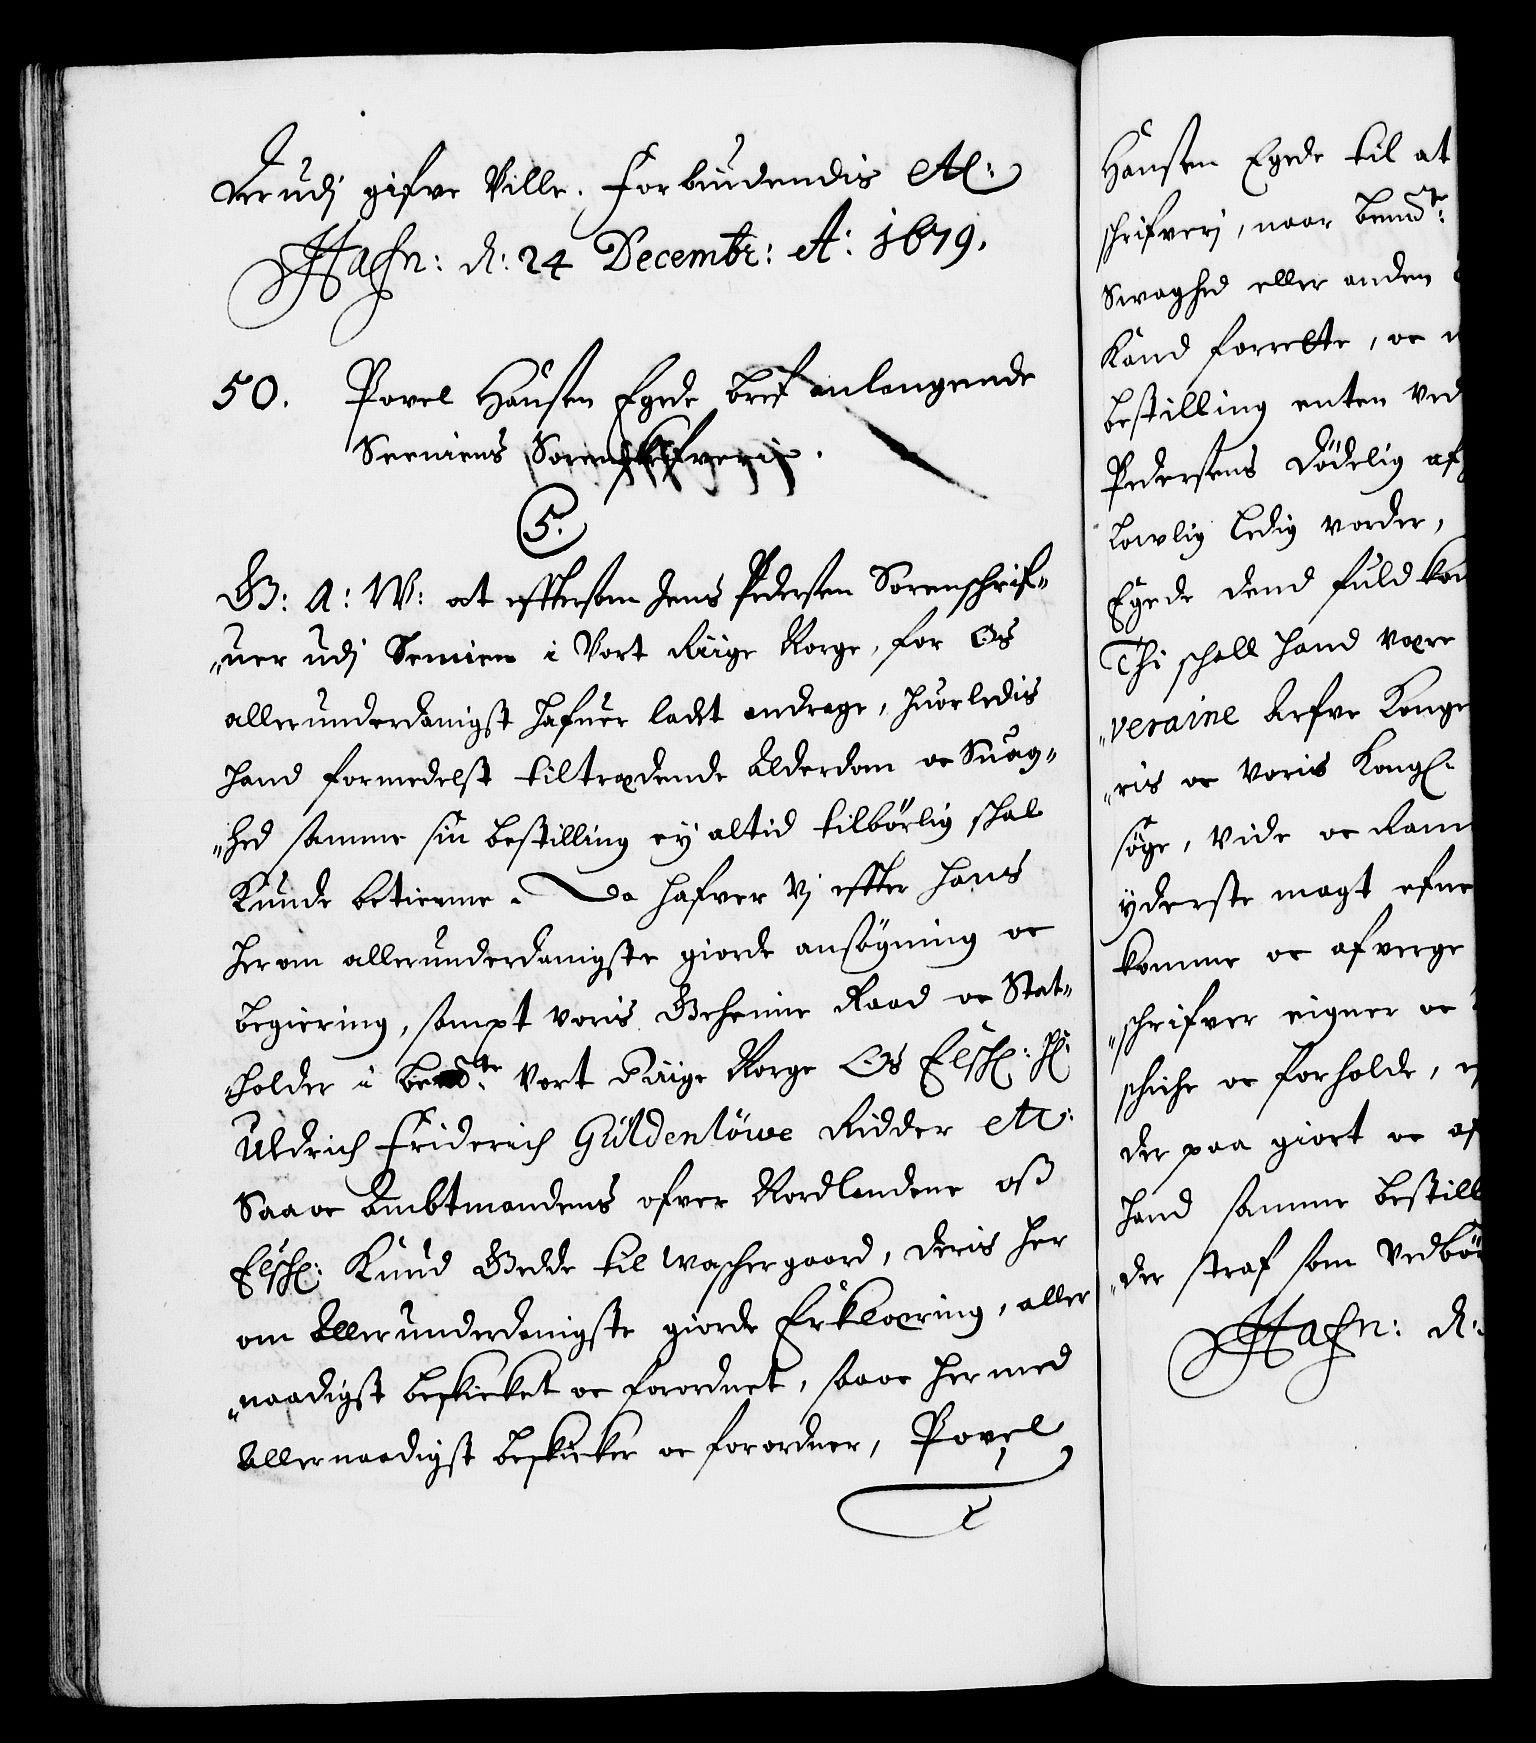 derudj gifve Ville. Forbiudendis etc:
Hafn: d: 24 Decembr: A: 1679.
50. Povel Hansen Egede bref anlangende
Seeniens Sorenskrifveri.
5.
G: A: W: at efftersom Jens Pedersen Sorenschrif„
„uer udj Senien i Vort Riige Norge, for Os
allerunderdanigst hafuer ladet andrage, huorledis
hand formedelst tiltrædende Alderdom oc Suag„
„hed samme sin bestilling ey altid tilbørlig schal
Kunde betienne. Da hafver Vj effter hans
herom allerunderdanigste giorde ansøgning oc
begiering, sampt voris Geheime Raad oc Stat„
„holder i bemte: Vort Riige Norge Os Elschl: Hr:
Uldrich Friderich Güldenlöwe Ridder etc:
Saa oc Ambtmandens ofver Nordlandene oss
Elschl: Knud Gedde til Waschergaard, deris her
om Allerunderdanigste giorde Erklæring, aller
„naadigst beskicket oc forordnet, saa oc hermed
Allernaadigst beskicker oc forordner, Povel
Hansen Egede til at
schrifverj, naar bemte:
Swaghed eller anden
Kand forrette, oc
bestilling enten ved
Pedersens dødelig af
lowlig ledig vorder,
Egede dend fuldkom
Thi schall hand være
„veraine Arfve Konge
„ris oc Voris Kongl:
søge, Vide oc Ram
yderste magt efne
komme oc afverge
„schrifver eigner oc
schiche oc forholde,
der paa giort oc
hand samme bestill
„der straf som Vedbør
Hafn: d: